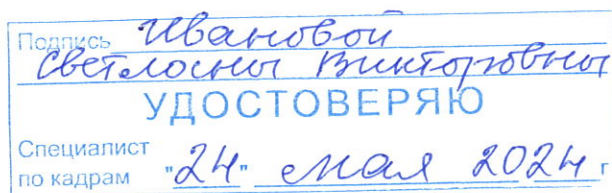 Подпись Ивановой
Светланы Викторовны
УДОСТОВЕРЯЮ
Специалист
по кадрам "24" мая 2024 г